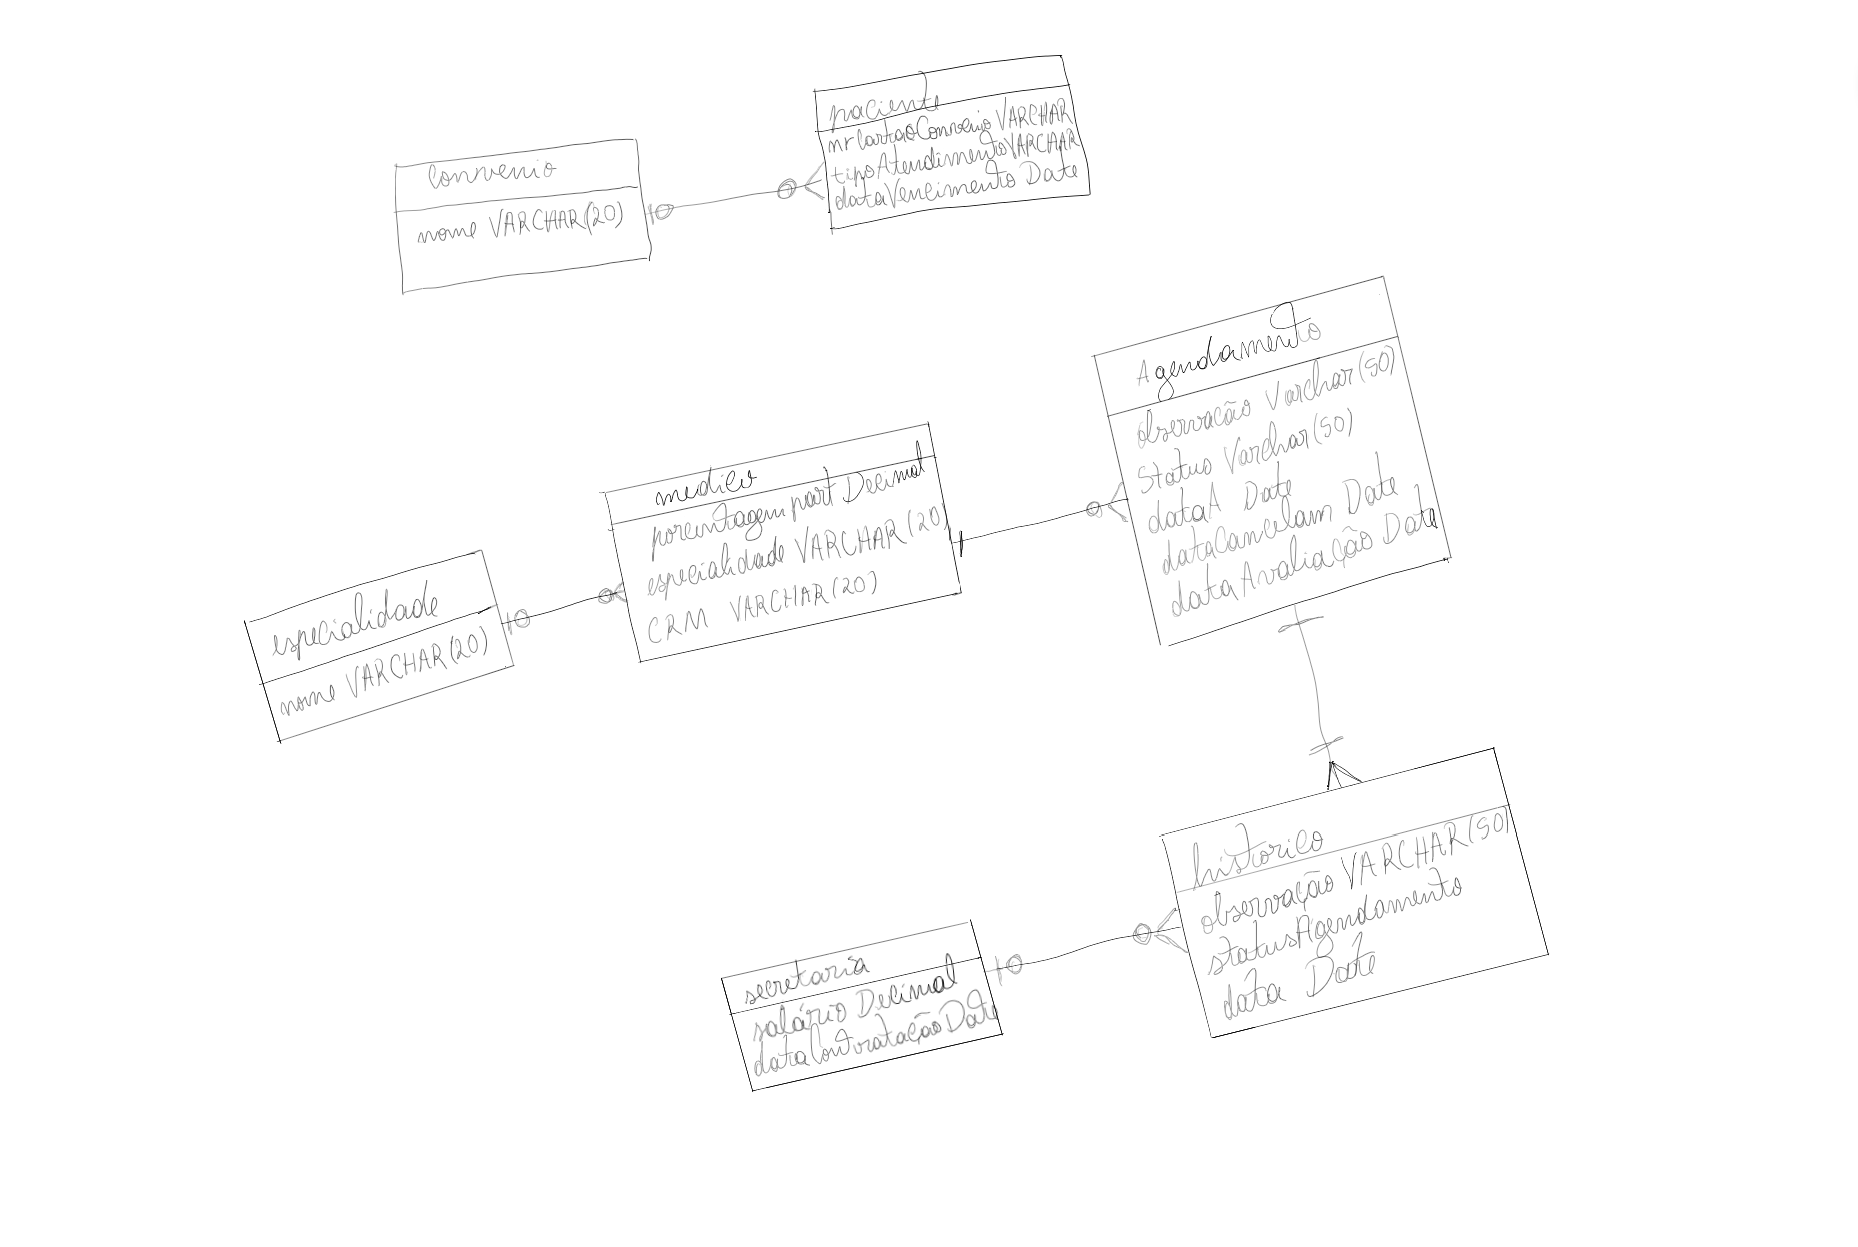 paciente
nrCartaoConvenio VARCHAR
tipoAtendimento VARCHAR
dataVencimento Date
convenio
nome VARCHAR(20)
Agendamento
observação Varchar(50)
Status Varchar(50)
dataA Date
dataCancelam Date
dataAvaliação Date
medico
porcentagem part Decimal
especialidade VARCHAR(20)
CRM VARCHAR(20)
especialidade
nome VARCHAR(20)
historico
observação VARCHAR(50)
statusAgendamento
data Date
secretaria
salário Decimal
dataContratação Date